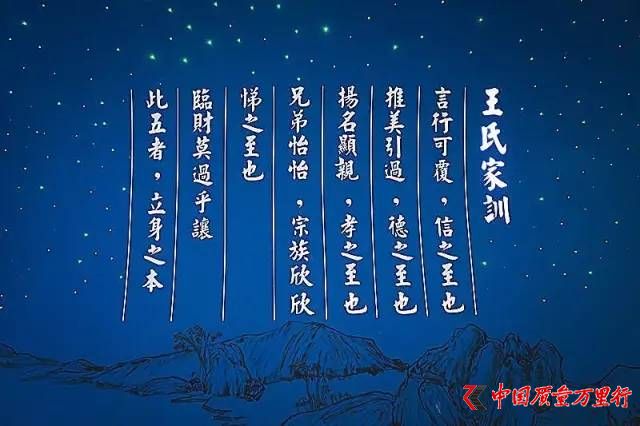 王氏家訓
言行可覆，信之至也
推美引過，德之至也
揚名顯親，孝之至也
兄弟怡怡，宗族欣欣
悌之至也
臨財莫過乎讓
此五者，立身之本
中国质量万里行